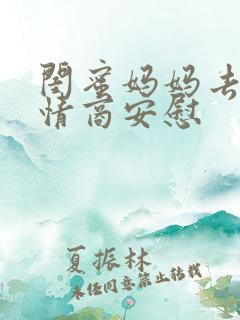 闺蜜妈妈去
情商安慰
夏振林
未经同意禁止转载